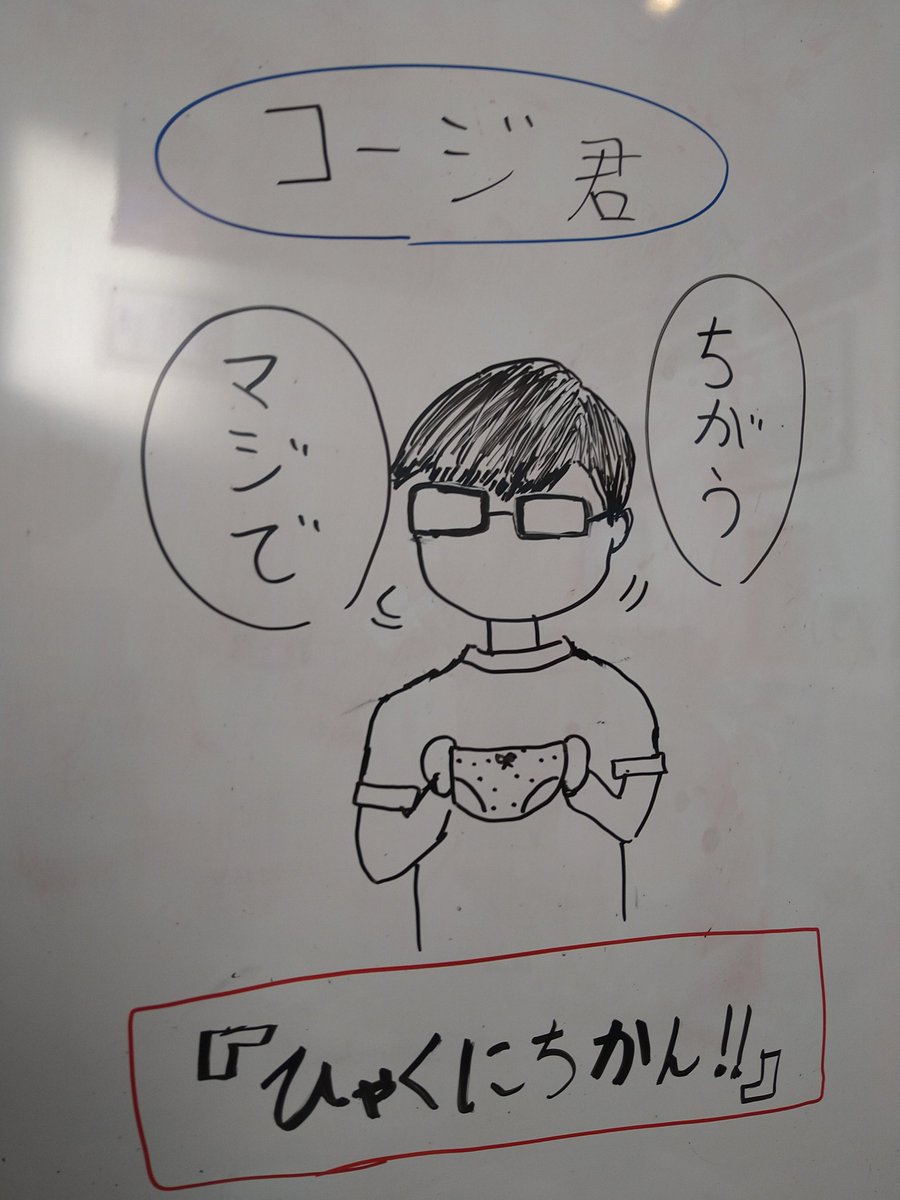 コージ君
ちがう
マジで
『ひゃくにちかん!!』